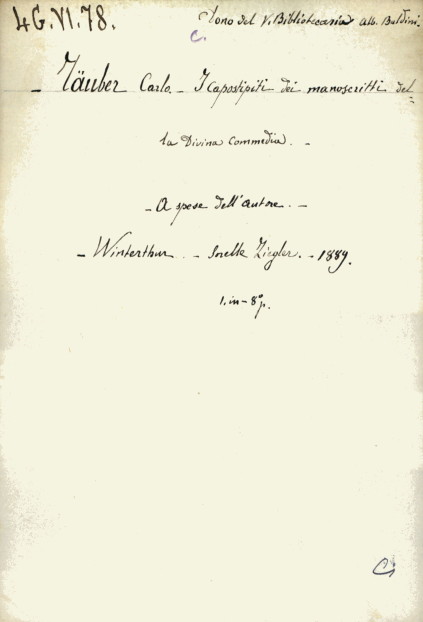 4G.VI.78.
Dono del V. Bibliotecario alb. Baldini.
C.
- Täuber Carlo. - I capostipiti dei manoscritti del=
la Divina Commedia. -
- A spese dell'autore. -
- Winterthur. - Sorelle Ziegler. - 1889.
1. in-8°p.